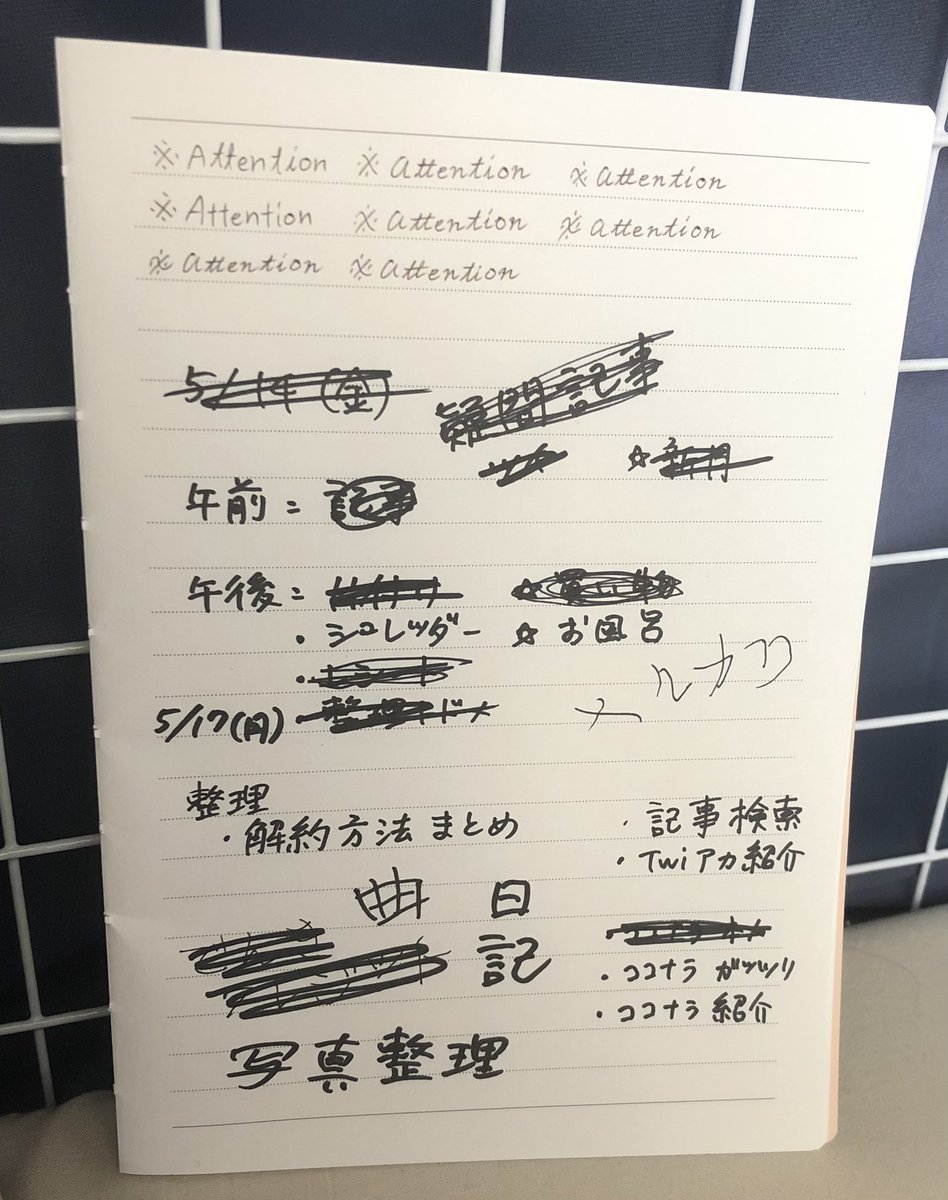 ※Attention ※Attention ※Attention
※Attention ※Attention ※Attention
※Attention ※Attention
5/14(金) 疑問記事
☆新月
午前= 記事
午後=
・シュレッダー ☆お風呂
メルカリ
5/17(月) 整理
整理
・解約方法まとめ ・記事検索
・Twiアカ紹介
曲 日
記
・ココナラ ガッツリ
・ココナラ紹介
写真整理